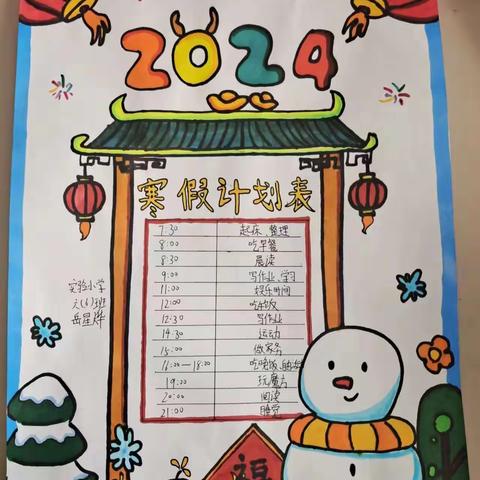 2024
寒假计划表
7:30 起床、整理
8:00 吃早餐
8:30 晨读
9:00 写作业、学习
11:00 娱乐时间
12:00 吃午饭
12:30 写作业
14:30 运动
15:00 做家务
16:00—18:00 吃晚饭、
19:00 玩魔方
20:00 阅读
21:00 睡觉
实验小学
六(6)班
岳星烨
福